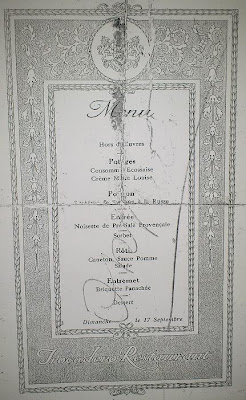 Menu
Hors d'Œuvres
Potages
Consommé Ecossaise
Crème Marie Louise
Poisson
à la Russe
Entrée
Noisette de Pré-Salé Provençale
Sorbet
Rôti
Caneton, Sauce Pomme
Salade
Entremet
Briquette Panachée
Dessert
Dimanche le 17 Septembre
Restaurant